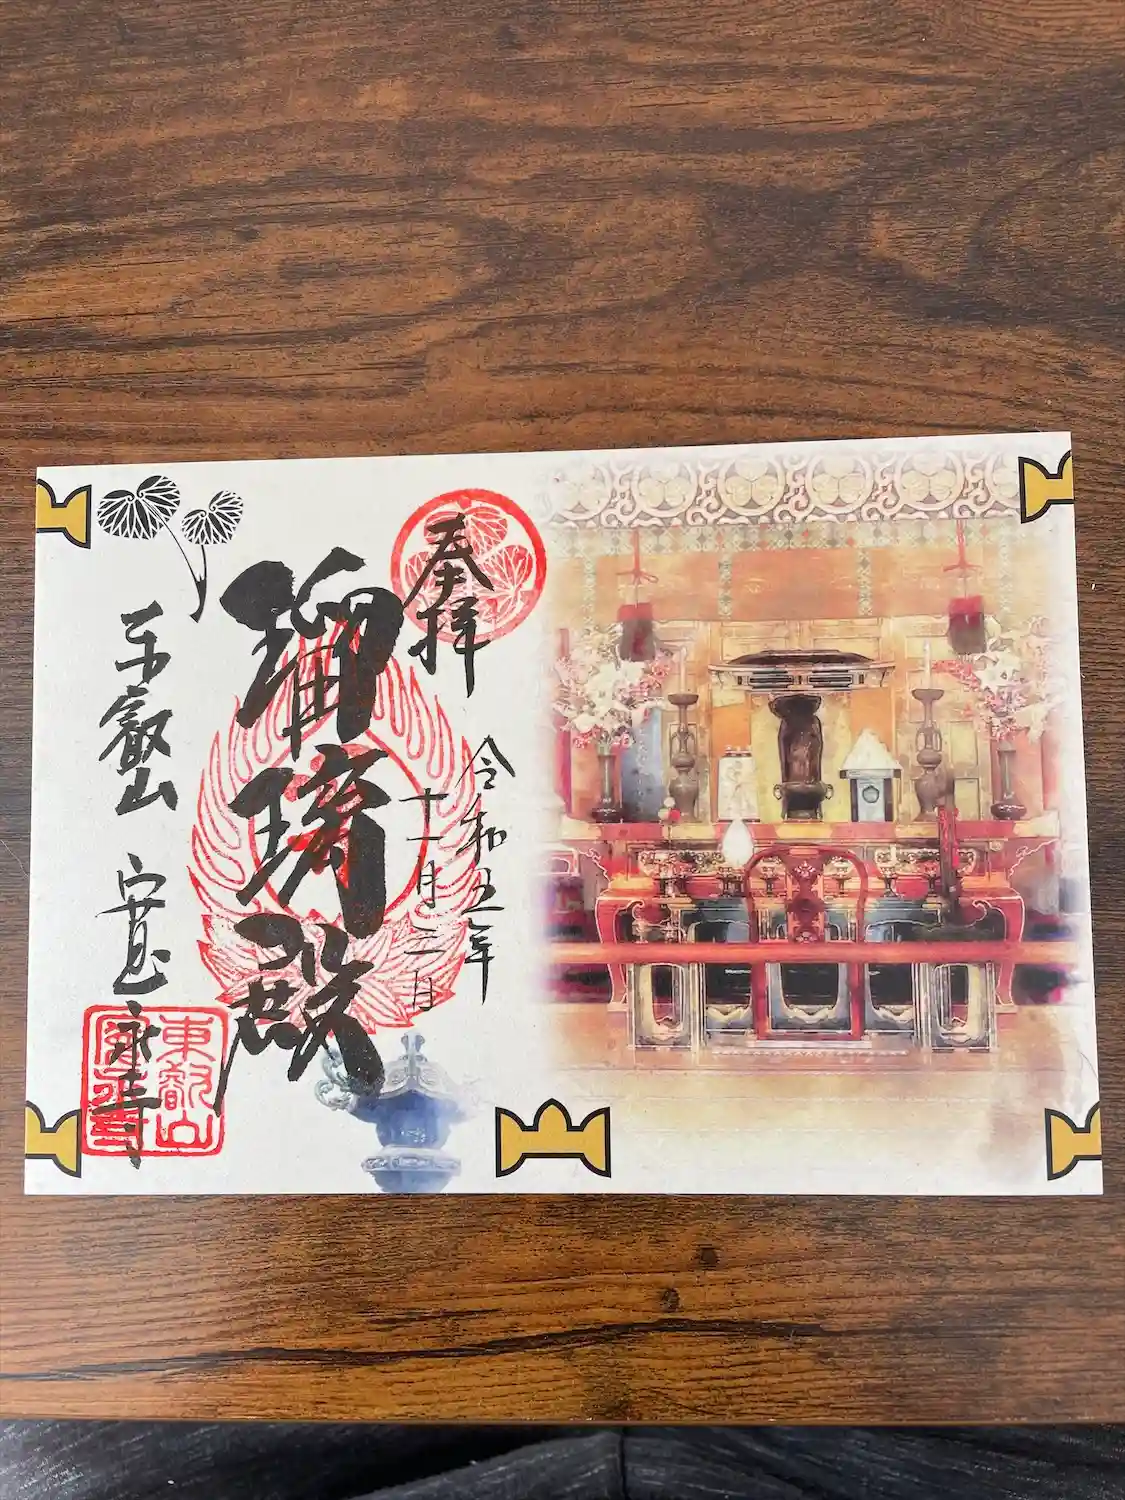 奉拝
令和五年
十一月三日
瑠璃殿
东叡山 寛永寺
東叡山
寛永寺